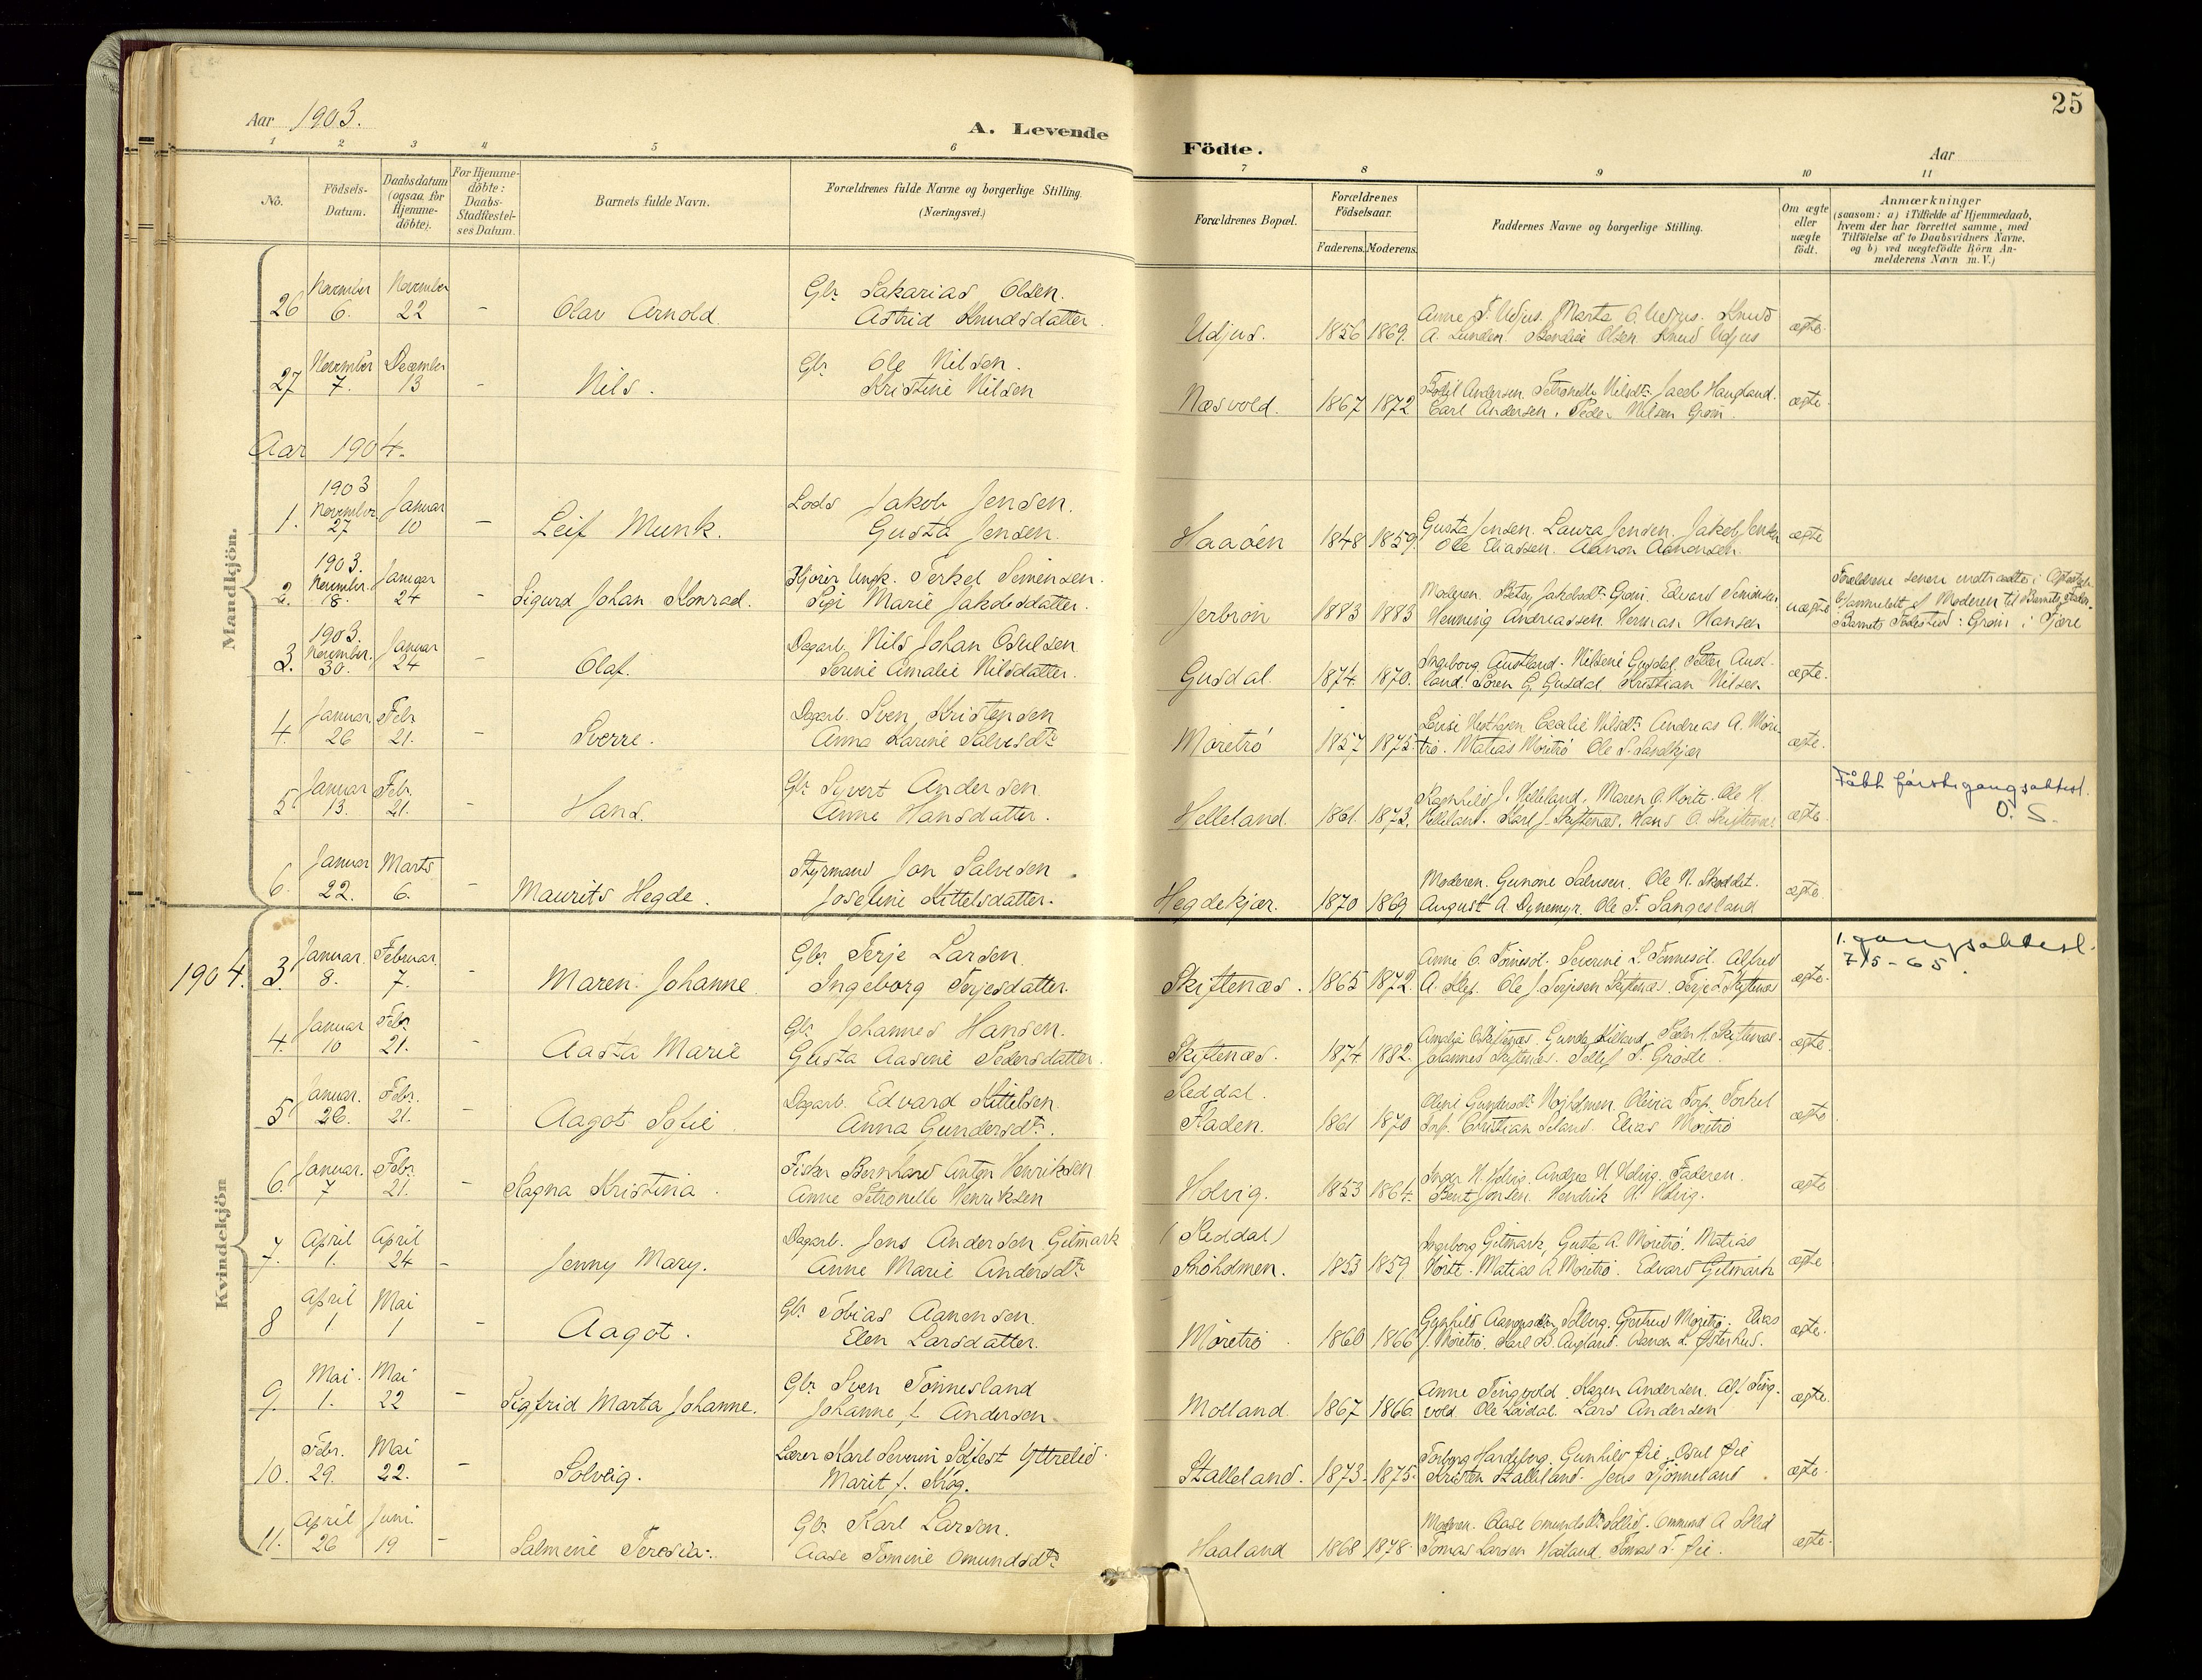 Aar 1903.
A. Levende
Födte.
Aar
25
1 2 3 4 5 6 7 8 9 10 11
No.
Födsels-Datum.
Daabsdatum (ogsaa for Hjemme-döbte).
For Hjemme-döbte: Daabs-Stadfæstel-ses Datum.
Barnets fulde Navn.
Forældrenes fulde Navne og borgerlige Stilling.
(Næringsvei.)
Forældrenes Bopæl.
Forældrenes Födselsaar.
Faderens. Moderens.
Faddernes Navne og borgerlige Stilling.
Om ægte eller uægte födt.
Anmærkninger
(saasom: a) i Tilfælde af Hjemmedaab,
hvem der har forrettet samme, med
Tilföielse af to Daabsvidners Navne,
og b) ved uægtefödte Börn An-
melderens Navn m. V.)
Mandkjön.
26 November 6. November 22 - Olav Arnold. Gbr. Sakarias Olsen.
Astrid Knudsdatter.
Udjus. 1856 1869. Anne T. Udjus. Marta O. Udjus. Knud
A. Lunden. Bendix Olsen. Knud Udjus ægte.
27 November 7. December 13 - Nils. Gbr. Ole Nilsen.
Kristine Nilsen
Næsvold. 1867 1872 Bodil Andersen. Petronelle Nilsdtr. Jacob Haugland.
Carl Andersen. Peder Nilsen Groin. ægte.
Aar 1904.
1. 1903 November 27 Januar 10 - Leif Munk. Lods Jakob Jensen.
Gusta Jensen.
Haaöen 1848 1859. Gusta Jensen. Laura Jensen. Jakob Jensen
Ole Eliassen. Aanon Aanonsen. ægte
2. 1903. November 18. Januar 24 - Sigurd Johan Konrad. Ungk. Terkel Simensen.
Marie Jakobsdatter.
1883 1883 Moderen. Betsy Jakobsdtr. Groin. Edvard Simensen
Henning Andreassen. Herman Hansen uægte Forældrene senere indtraadte i
af Moderen til Barnets
Barnets Födested: Groin i Fjære
3. 1903. November. 30. Januar 24 - Olaf. Dagarb. Nils Johan Osulsen
Serine Amalie Nilsdatter.
Gusdal. 1874. 1870. Ingeborg Austland. Nilsine Gusdal. Petter Aust-
land. Sören G. Gusdal. Kristian Nilsen ægte.
4. Januar 26 Febr. 21. - Sverre. Dagarb. Sven Kristensen
Anna Karine Salvesdtr.
Möretrö 1857 1875. Cecilie Nilsdtr. Andreas A. Möre-
trö. Matias Möretrö Ole S. Sandkjær ægte.
5 Januar 13. Febr. 21. - Hans. Gbr. Syvert Andersen.
Anne Hansdatter.
Helleland. 1861. 1873. Ragnhild J. Helleland. Maren O. Ole H.
Helleland. Karl J. Skiftenæs. Hans O. Skiftenæs. ægte. Fått förstegangsattest.
O. S.
6. Januar 22. Marts 6. - Maurits Hegde. Styrmand Jon Salvesen
Josefine Kittelsdatter.
Hegdekjær. 1870 1869 Moderen. Gunone Salvesen. Ole N. Skoddet.
August A. Dynemyr. Ole T. Sangesland ægte.
Kvindekjön
1904. 3. Januar. 8. Februar. 7. - Maren Johanne Gbr. Terje Larsen.
Ingeborg Terjesdatter.
Skiftenæs. 1865 1872. Anne O. Severine L. Alfred
A. Klep. Ole J. Terjesen Skiftenæs. Terje L. Skiftenæs ægte. 1. gangsattest.
7/5-65.
4. Januar 10 Febr. 21. - Aasta Marie Gbr. Johannes Hansen.
Gusta Aasine Pedersdatter.
Skiftenæs. 1874 1882. Amalie Skiftenæs. Gunda Peder H. Skiftenæs.
Johannes Skiftenæs. Tellef T. Grosle. ægte.
5 Januar. 26. Febr. 21. - Aagot Sofie. Dagarb. Edvard Kittelsen.
Anna Gundersdtr.
Reddal.
Fladen. 1861 1870 Oline Gundersdtr. Olivia Torp. Torkel
Torp. Christian Elias Möretrö ægte.
6. Januar. 7 Febr. 21. - Ragna Kristina. Fisker Bernhard Anton Henriksen
Anne Petronelle Henriksen
Holvig. 1853 1864. Inger H. Holvig. Andrea H. Holvig. Faderen.
Bent Jonsen. Hendrik H. Holvig. ægte
7. April 1. April 24 - Jenny Mary. Dagarb. Jens Andersen Gitmark
Anne Marie Andersdtr.
(Reddal)
1853 1859 Ingeborg Gitmark, Gusta A. Möretrö. Matias
Matias A. Möretrö. Edvard Gitmark ægte
8 April 1 Mai 1 - Aagot. Gbr. Tobias Aanonsen.
Elen Larsdatter.
Möretrö 1860 1866 Gunhild Solberg. Gjertrud Möretrö. Elias
J. Möretrö. Karl B. Augland. Aanon L. Østerhus. ægte.
9. Mai. 1. Mai 22 - Sigfrid Marta Johanne. Gbr. Sven Tönnesland
Johanne f. Andersen
Molland. 1867 1866 Anne Tingvold. Karen Andersen. Alf Ting-
vold. Ole Lars Andersen ægte.
10. Febr. 29. Mai 22. - Solveig. Lærer Karl Severin Solfest Yttrelid.
Marit f. Krog.
Stalleland. 1873. 1875. Torborg Hardeberg. Gunhild Øie. Osul Øie
Kristen Stalleland. Jens Tjönneland. ægte.
11. April 26 Juni. 19 - Salmine Teresia. Gbr. Karl Larsen.
Aase Tomine Omundsdtr.
Haaland 1868 1878. Moderen. Aase Omundsdtr. Omund A.
Tomas Larsen Haaland. Tomas T. Øie. ægte.